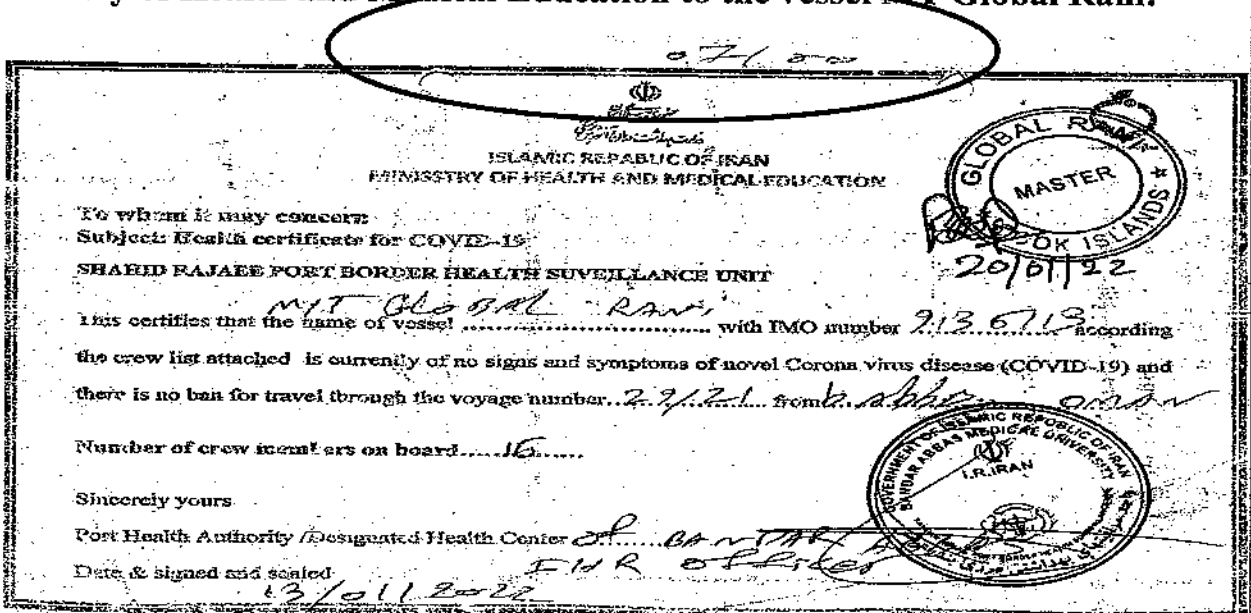 of Health and Medical Education to the vessel M/T Global Rani.
07/00
ISLAMIC REPABLIC OF IRAN
MINISSTRY OF HEALTH AND MEDICAL EDUCATION
GLOBAL RANI
MASTER
COOK ISLANDS
20/01/22
To whom it may concern
Subject: Health certificate for COVID-19
SHAHID RAJAEE PORT BORDER HEALTH SUVEILLANCE UNIT
This certifies that the name of vessel M/T GLOBAL RANI with IMO number 9136713 according
the crew list attached is currently of no signs and symptoms of novel Corona virus disease (COVID-19) and
there is no ban for travel through the voyage number..29/21 from b. abbas OMAN
Number of crew members on board......16......
GOVERNMENT OF ISLAMIC REPUBLIC OF IRAN
BANDAR ABBAS MEDICAL UNIVERSITY
I.R.IRAN
Sincerely yours
Port Health Authority /Designated Health Center of......BANTAR
IHR officer
Date & signed and sealed
13/01/2022